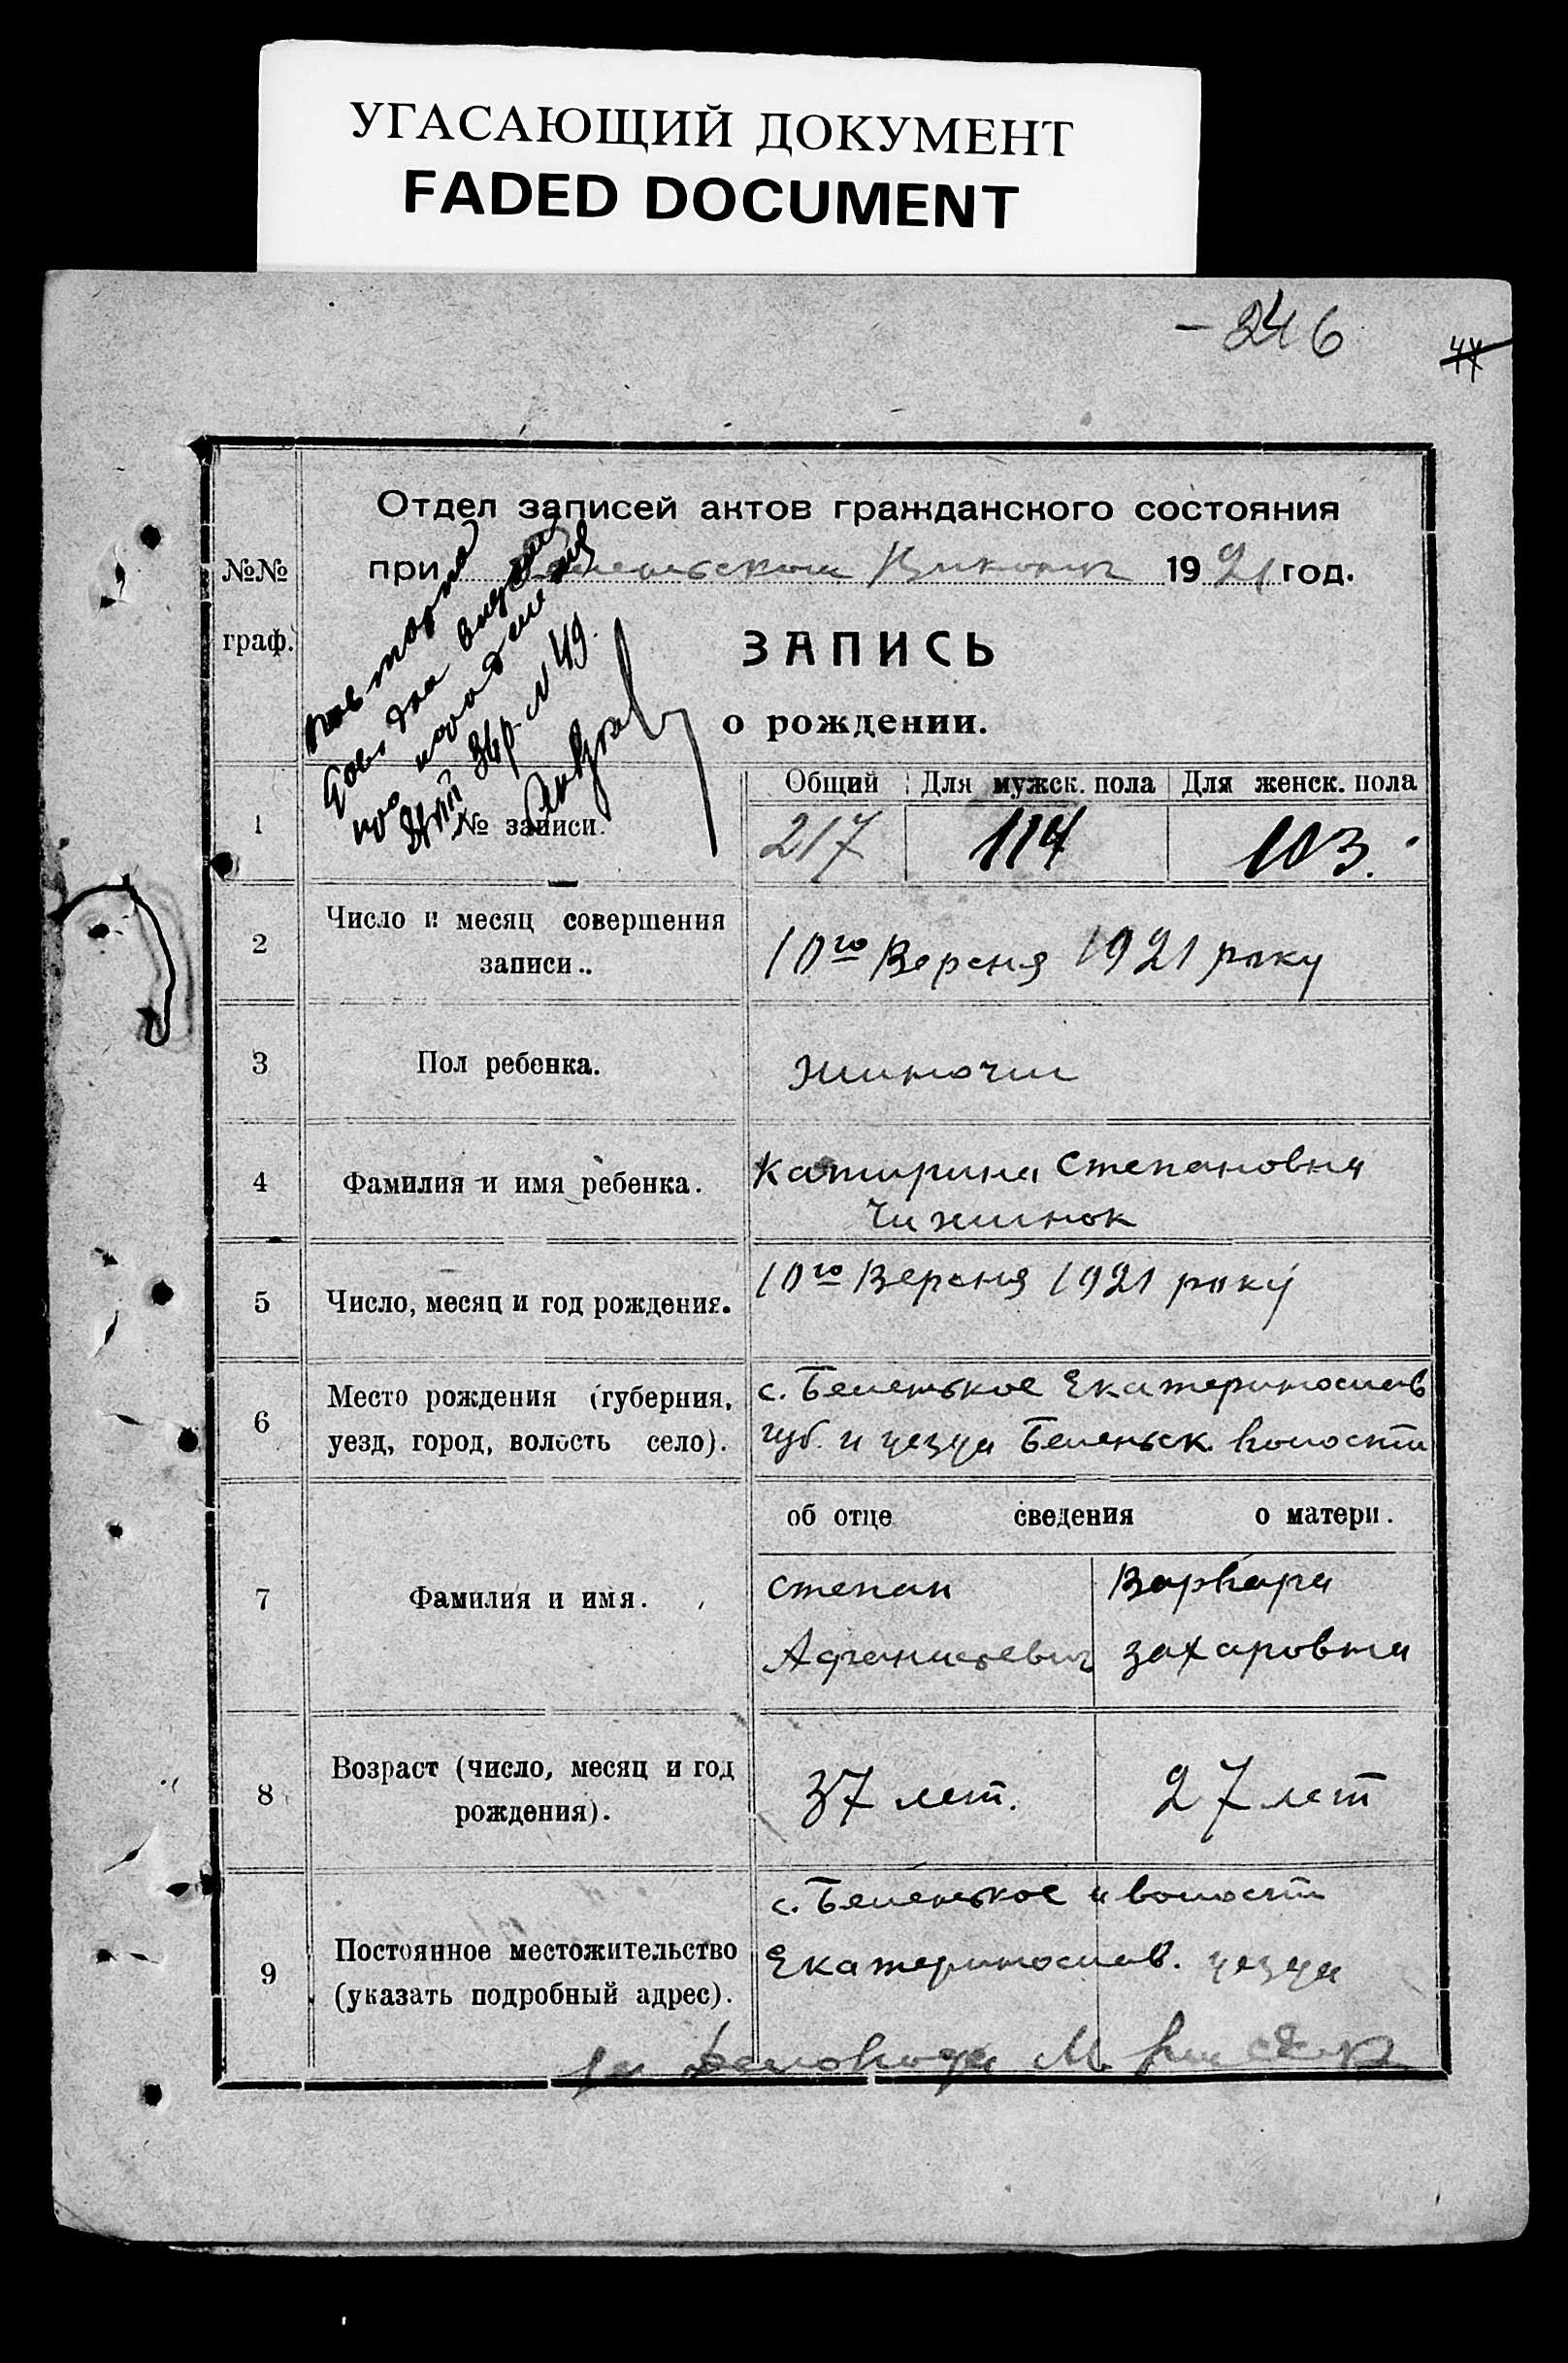 УГАСАЮЩИЙ ДОКУМЕНТ
FADED DOCUMENT
- 246
44
Отдел записей актов гражданского состояния
№№
граф.
при 1921 год.
ЗАПИСЬ
о рождении.
Общий Для мужск. пола Для женск. пола
1 № записи. 217 114 103.
2 Число и месяц совершения
записи..
10го Версня 1921 року
3 Пол ребенка. жиночи
4 Фамилия и имя ребенка.
Катирина Степановна
Чижинок
5 Число, месяц и год рождения.
10го Версня 1921 року
6 Место рождения (губерния,
уезд, город, волость село).
с. Беленькое Екатеринослав
губ. и уезда Беленьск. волости
об отце сведения о матери.
7 Фамилия и имя.
Степан Варвара
Афанасьевич Захаровна
8 Возраст (число, месяц и год
рождения).
37 лет. 27 лет
9 Постоянное местожительство
(указать подробный адрес).
с. Беленькое и волости
Екатеринослав. уезда